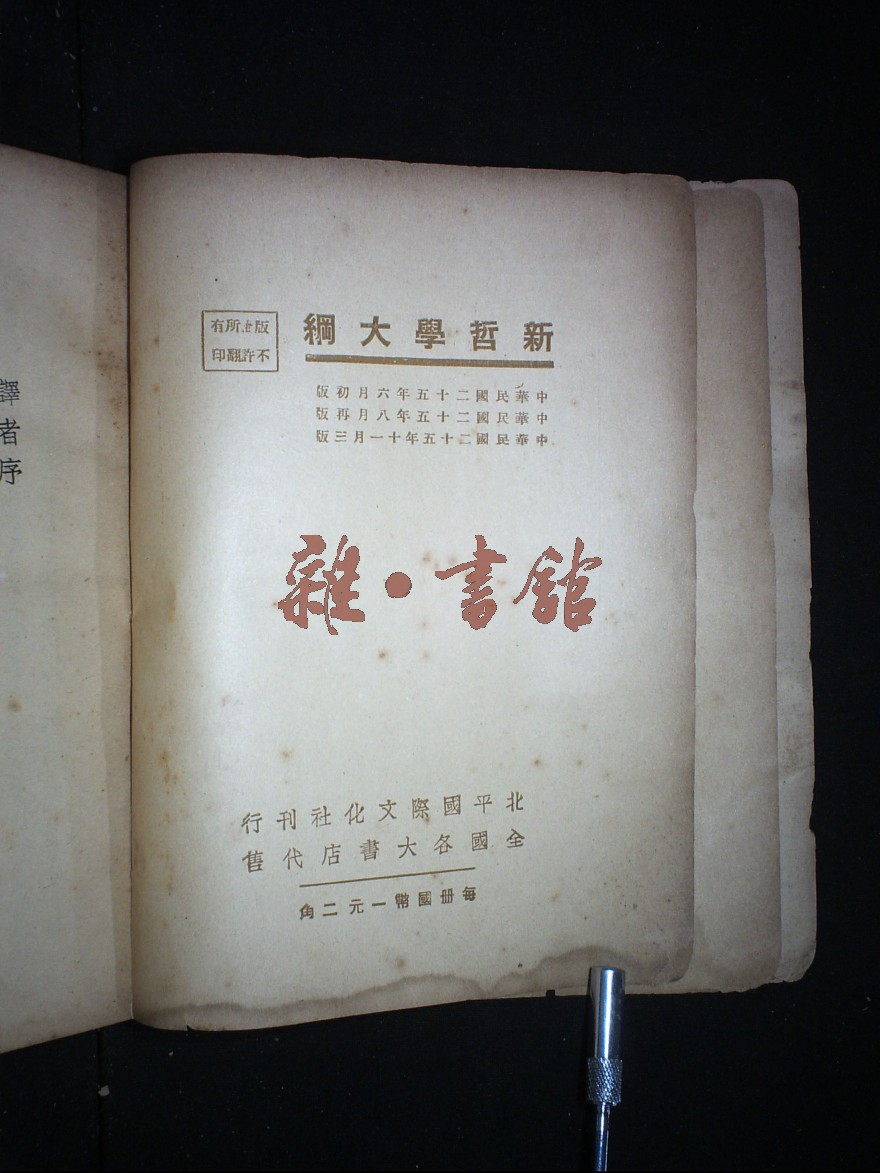 新哲學大綱
版권所有
不許翻印
中華民國二十五年六月初版
中華民國二十五年八月再版
中華民國二十五年十一月三版
雜·書館
北平國際文化社刊行
全國各大書店代售
每冊國幣一元二角
譯者序